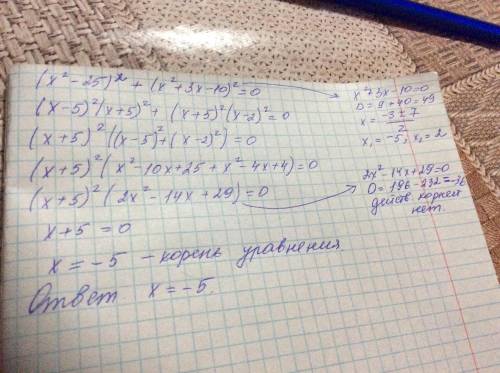 (x²-25)² + (x²+3x-10)²=0
(x-5)²(x+5)²+ (x+5)²(x-2)²=0
(x+5)²((x-5)²+(x-2)²)=0
(x+5)²(x²-10x+25+x²-4x+4)=0
(x+5)²(2x²-14x+29)=0
x+5=0
x=-5 - корень уравнения
Ответ x=-5.
x²+3x-10=0
D=9+40=49
x=-3±7
2
x₁=-5; x₂=2
2x²-14x+29=0
D=196-232=-36
действ. корней
нет.